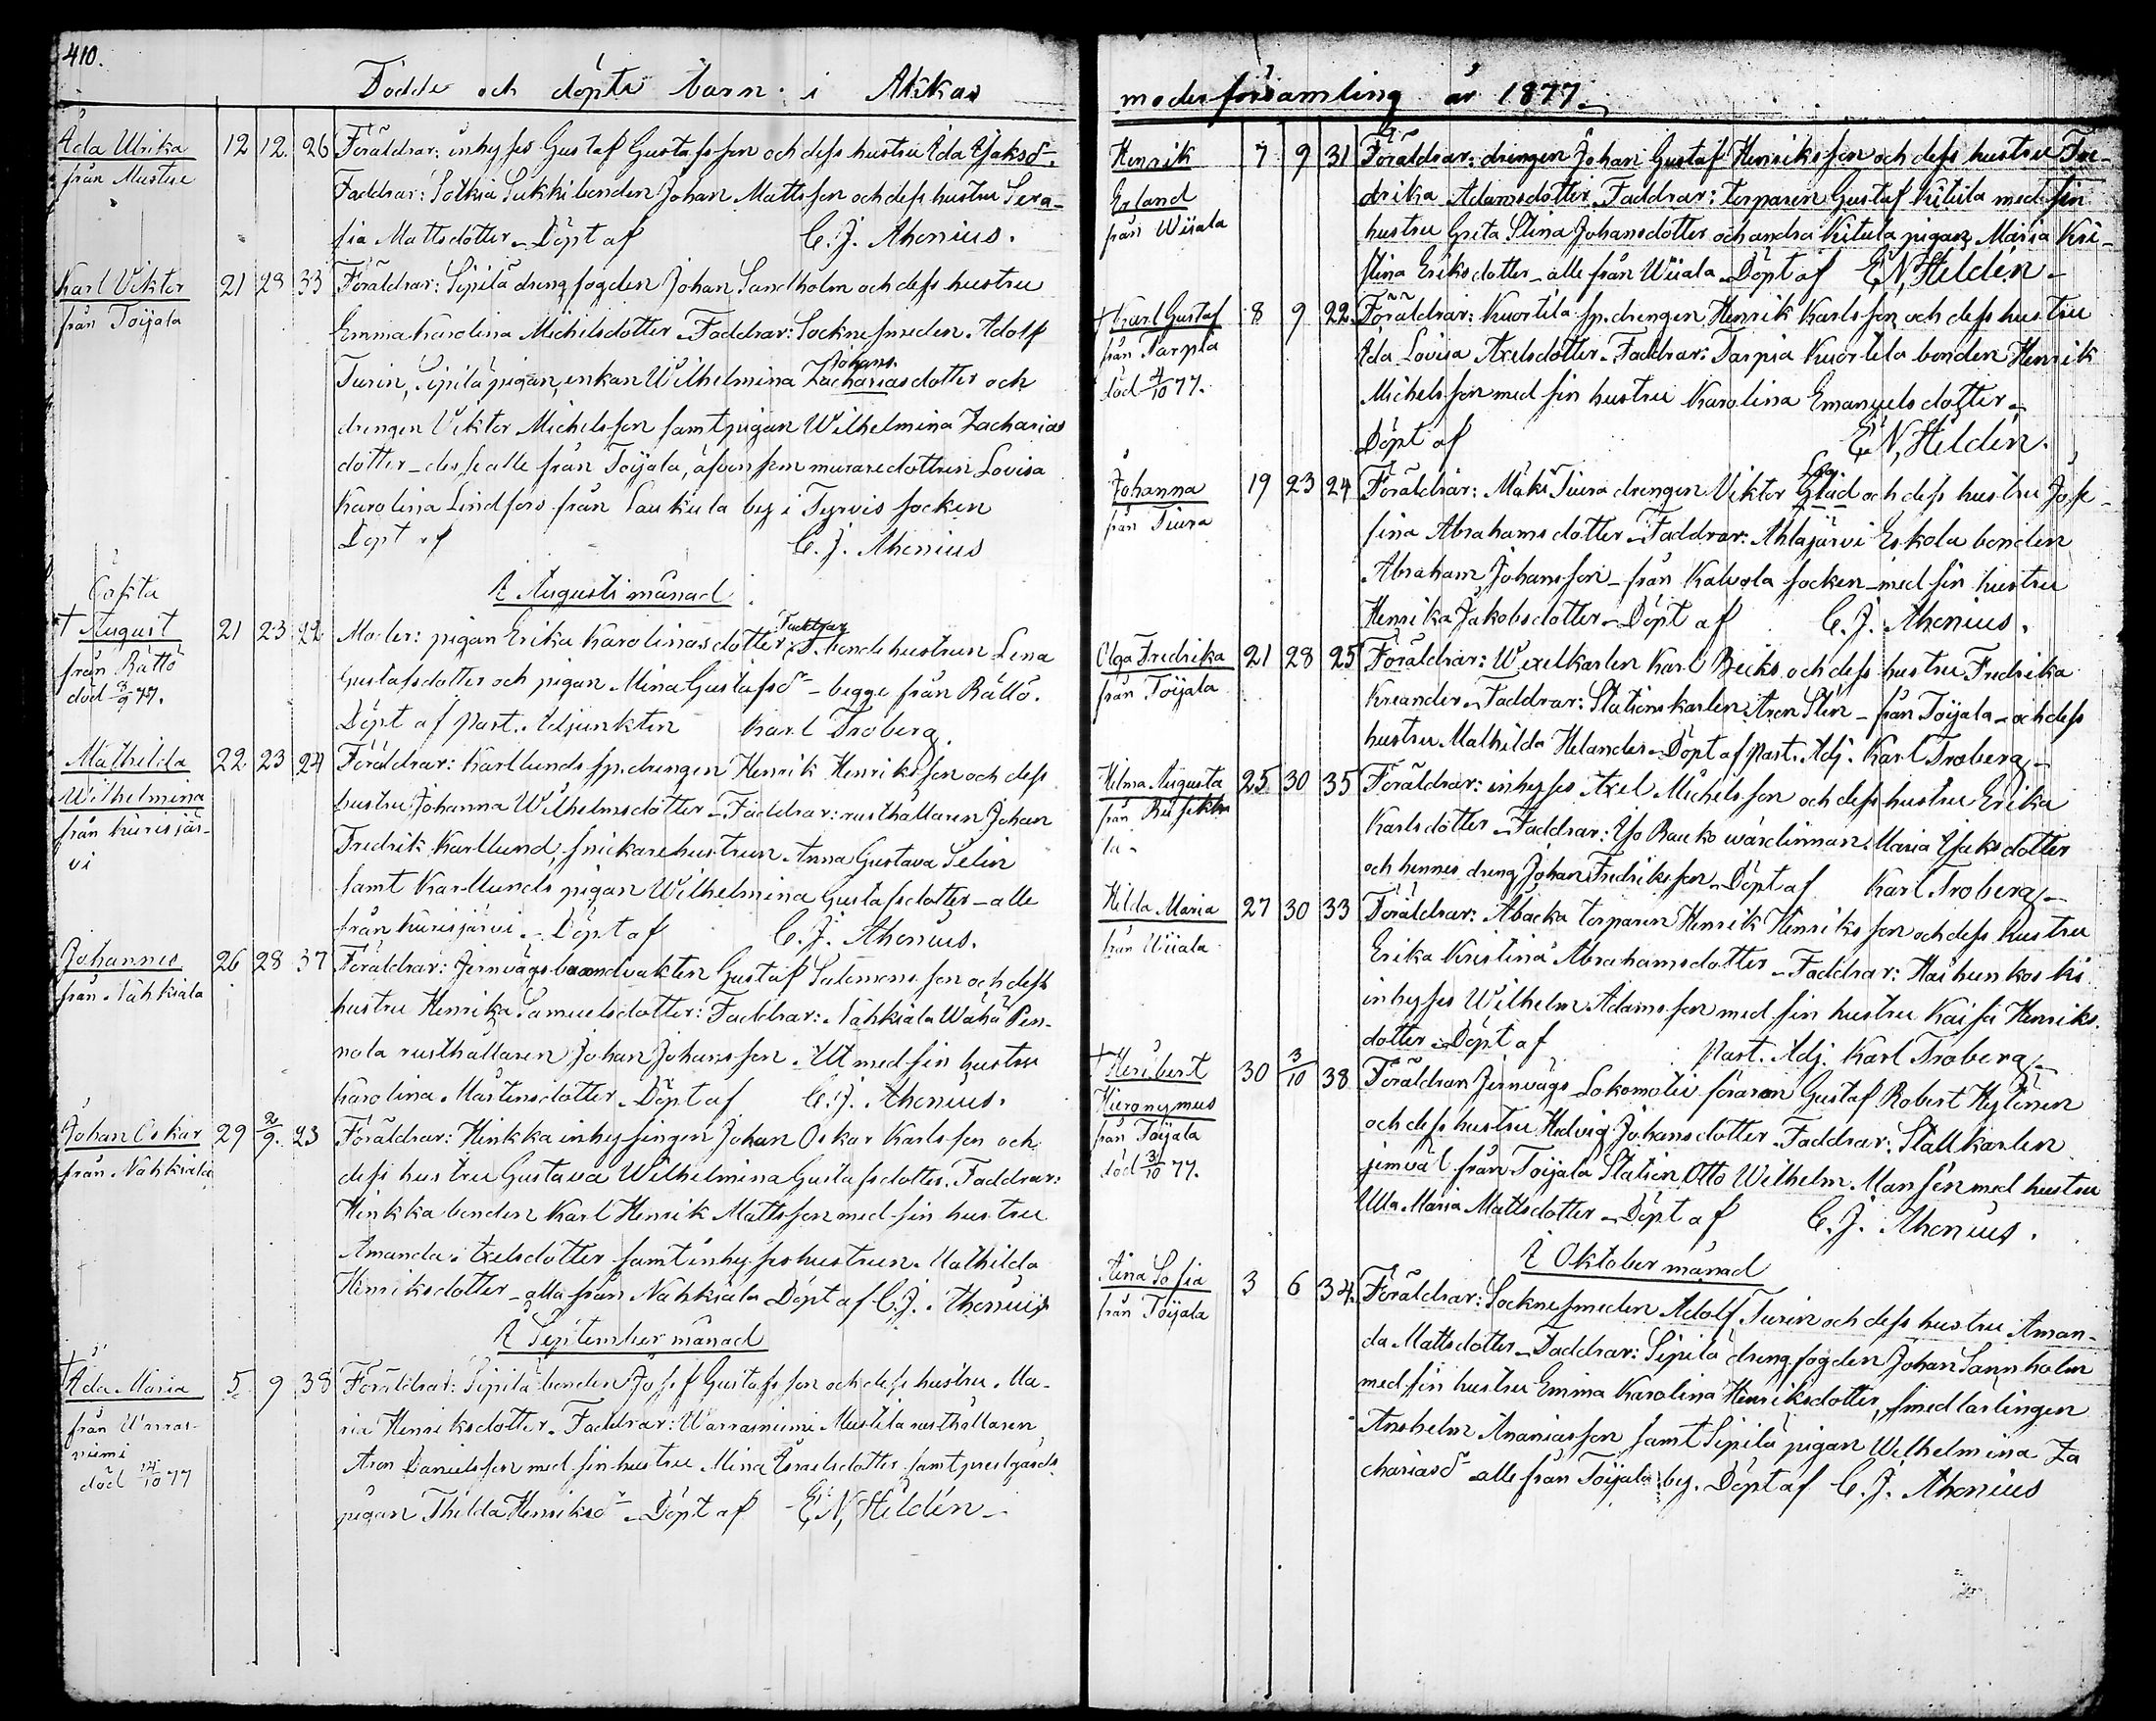 410.
Födde och döpte barn i Akkas
Ada Ulrika 12 12. 26 Föräldrar: inhyses Gustaf Gustafsson och dess hustru Ada Isaksdr.
från Mustue
Faddrar: Sotkia Sukki bonden Johan Mattsson och dess hustru Sera-
fia Mattsdotter. Döpt af C. J. Ahonius.
Karl Viktor 21 28 33 Föräldrar: Sipilä drengfogden Johan Sandholm och dess hustru
från Toijala
Emma Karolina Michelsdotter. Faddrar: Socknesmeden Adolf
Johans
Turin, Sipilä pigan, enkan Wilhelmina Zachariasdotter och
drengen Viktor Michelsson samt pigan Wilhelmina Zacharias
dotter – desse alle från Toijala, äfvensom muraredottren Lovisa
Karolina Lindfors från Laukula by i Tyrvis socken
Döpt af C. J. Ahonius
I Augusti månad
Oäkta
† August 21 23 22 Moder: pigan Erika Karolinasdotter. Faddrar: bondehustrun Lena
från Rättö
död 3/9 77.
Gustafsdotter och pigan Mina Gustafsdr – begge från Rättö.
Döpt af Past. Adjunkten Karl Froberg.
Mathilda 22 23 24 Föräldrar: Karllunds sp. drengen Henrik Henriksson och dess
Wilhelmina
från Kurisjär-
vi
hustru Johanna Wilhelmsdotter – Faddrar: rusthållaren Johan
Fredrik Karllund, snickarehustrun Anna Gustava Selin
samt Karllunds pigan Wilhelmina Gustafsdotter – alle
från Kurisjärvi. – Döpt af C. J. Ahonius.
Johannes 26 28 37 Föräldrar: Jernvägs banvakten Gustaf Salomonsson och dess
från Nahkiala
hustru Henrika Samuelsdotter: Faddrar: Nahkiala Wähä Pen-
nola rusthållaren Johan Johansson Ult med sin hustru
Karolina Mårtensdotter. Döpt af C. J. Ahonius.
Johan Oskar 29 2/9. 23 Föräldrar: Hinkka inhysingen Johan Oskar Karlsson och
från Nahkiala
dess hustru Gustava Wilhelmina Gustafsdotter. Faddrar:
Hinkka bonden Karl Henrik Mattsson med sin hustru
Amanda Axelsdotter samt inhyseshustrun Mathilda
Henriksdotter – alla från Nahkiala Döpt af C. J. Ahonius
I September månad
† Ada Maria 5 9 38 Föräldrar: Sipilä bonden Josef Gustafsson och dess hustru Ma-
från Warras-
niemi
död 14/10 77
ria Henriksdotter. Faddrar: Warrasniemi Mustila rusthållaren
Aron Danielsson med sin hustru Mina Israelsdotter samt prestgårds
pigan Thilda Henriksdr – Döpt af E. N. Heldén –
moderförsamling år 1877.
Henrik 7 9 31 Föräldrar: drengen Johan Gustaf Henriksson och dess hustru Fre-
Erland
från Wiiala
drika Adamsdotter. Faddrar: torparen Gustaf Kitula med sin
hustru Greta Stina Johansdotter och andra Kitula pigan Maria Kri-
stina Eriksdotter – alle från Wiiala – Döpt af E. N. Heldén –
† Karl Gustaf 8 9 22 Föräldrar: Kuortila sp. drengen Henrik Karlsson och dess hustru
från Tarpia
död 4/10 77.
Ada Lovisa Axelsdotter. Faddrar: Tarpia Kuortila bonden Henrik
Michelsson med sin hustru Karolina Emanuelsdotter –
Döpt af E. N. Heldén.
Johanna 19 23 24 Föräldrar: Mäki Tiura drengen Viktor Glad och dess hustru Jose-
från Tiura
fina Abrahamsdotter – Faddrar: Ahlajärvi Eskola bonden
Abraham Johansson – från Kalvola socken – med sin hustru
Henrika Jakobsdotter – Döpt af C. J. Ahonius.
Olga Fredrika 21 28 25 Föräldrar: Wexelkarlen Karl Becks och dess hustru Fredrika
från Toijala
Kreander. Faddrar: Stationskarlen Aron Slin – från Toijala – och dess
hustru Mathilda Helander. Döpt af Past. Adj. Karl Froberg –
Hilma Augusta 25 30 35 Föräldrar: inhyses Axel Michelsson och dess hustru Erika
från
la –
Karlsdotter – Faddrar: Yso Rauko wärdinnan Maria Isaksdotter
och hennes dreng Johan Fredriksson. Döpt af Karl Froberg –
Hilda Maria 27 30 33 Föräldrar: Äbäckä torparen Henrik Henriksson och dess hustru
från Wiiala
Erika Kristina Abrahamsdotter. Faddrar: Haihunkoski
inhyses Wilhelm Adamsson med sin hustru Kaisa Henriks
dotter – Döpt af Past. Adj. Karl Froberg –
† Heribert 30 3/10 38 Föräldrar Jernvägs Lokomotivföraren Gustaf Robert Hytönen
Hieronymus
från Toijala
död 3/10 77.
och dess hustru Hedvig Johansdotter. Faddrar: Stallkarlen
jemväl från Toijala Station Otto Wilhelm Mansén med hustru
Ulla Maria Mattsdotter – Döpt af C. J. Ahonius.
I Oktober månad
Aina Sofia 3 6 34. Föräldrar: Socknesmeden Adolf Turin och dess hustru Aman-
från Toijala
da Mattsdotter. Faddrar: Sipilä drengfogden Johan Sannholm
med sin hustru Emma Karolina Henriksdotter, smedlärlingen
Anshelm Ananiasson samt Sipilä pigan Wilhelmina Za
chariasdr alle från Toijala by. Döpt af C. J. Ahonius